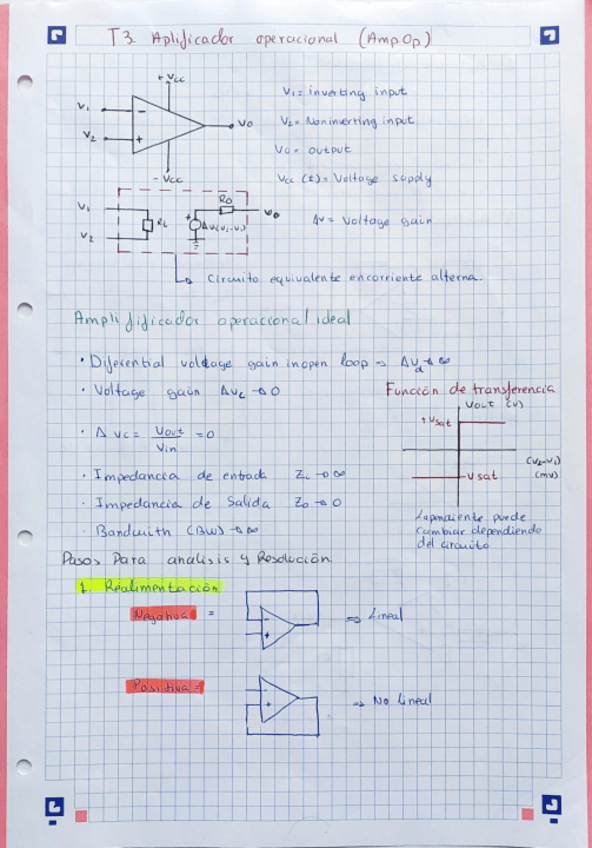 T3. Aplificador operacional (AmpOp)
+Vcc
V1
-
V2
+
Vo
-Vcc
V1 = inverting input
V2 = Noninverting input
Vo = output
Vcc (±) = Voltage supply
V1
V2
Ri
+
Av(V2-V1)
Ro
vo
Av = Voltage gain
Circuito equivalente encorriente alterna.
Amplifificador operacional ideal
• Diferential voldage gain in open loop → Avd → ∞
• Voltage gain Avc → 0
• A vc = Vout / Vin = 0
• Impedancia de entrada Zi → ∞
• Impedancia de Salida Zo → 0
• Bandwith (BW) → ∞
Función de transferencia
Vout (v)
+Vsat
(V2-V1)
(mv)
-Vsat
La pendiente puede
cambiar dependiendo
del circuito
Pasos Para analisis y Resolución
1. Realimentación
Negativa =
-
+
⇒ Lineal
Positiva =
-
+
⇒ No Lineal